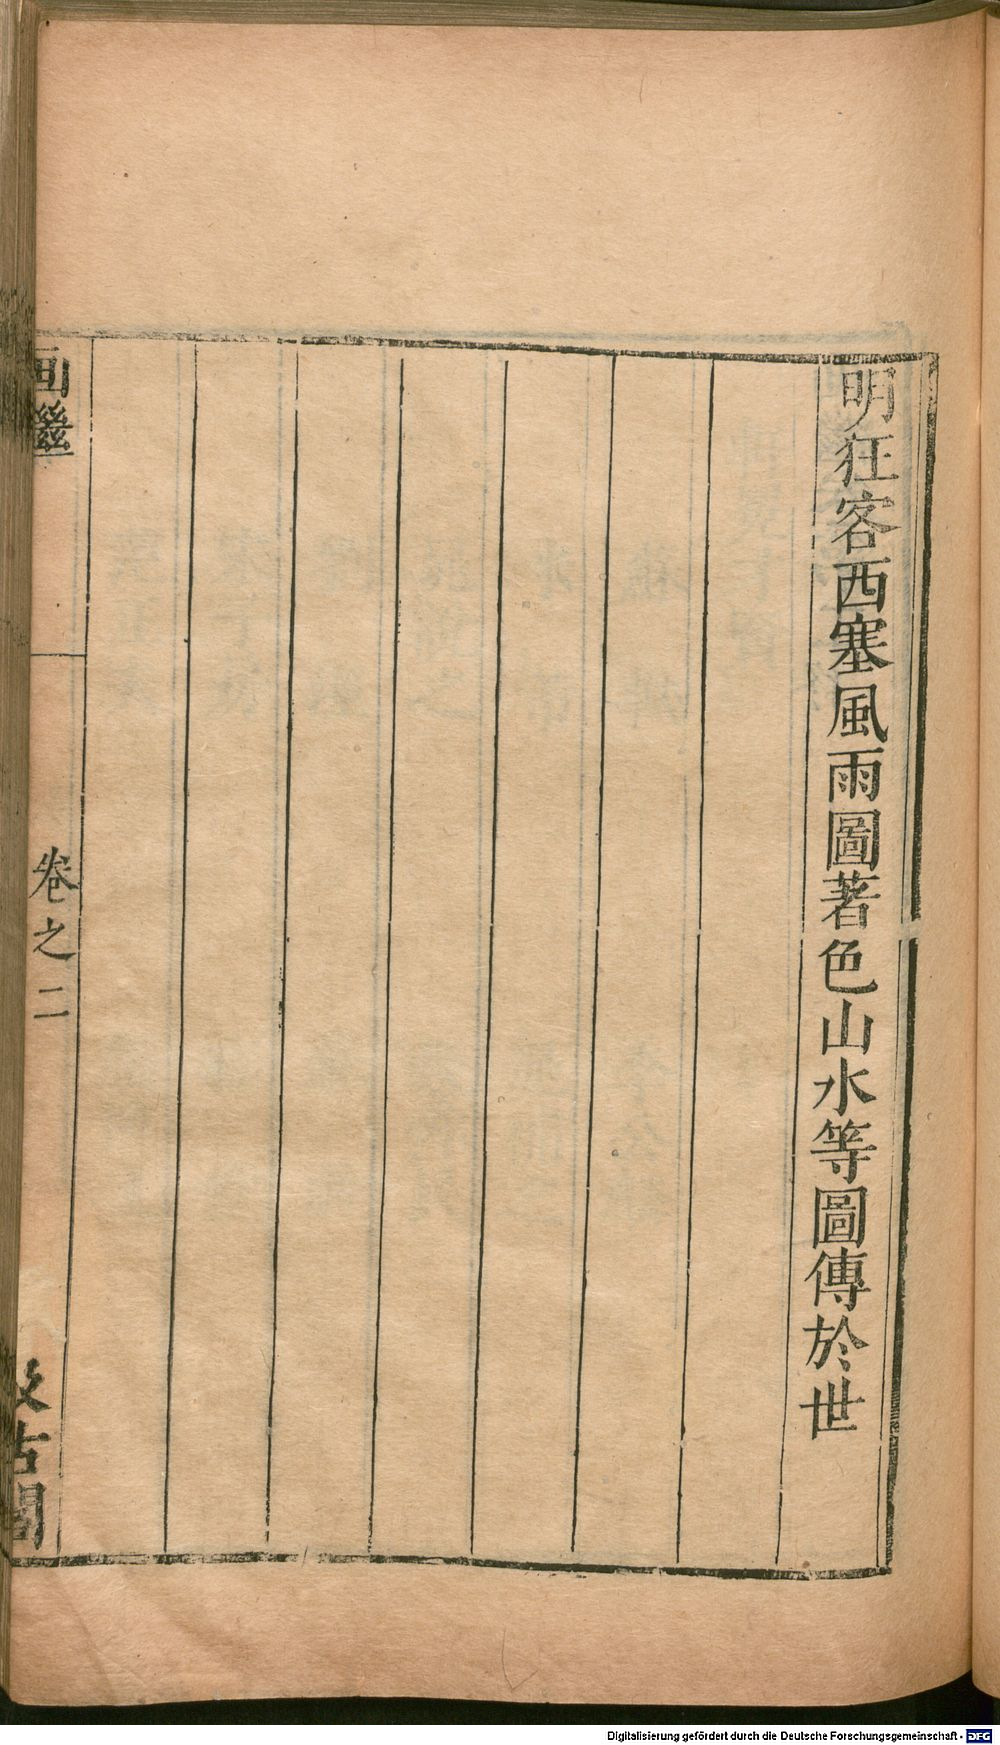 明狂客西塞風雨圖著色山水等圖傳於世
画繼
卷之二
汲古閣
Digitalisierung gefördert durch die Deutsche Forschungsgemeinschaft - DFG